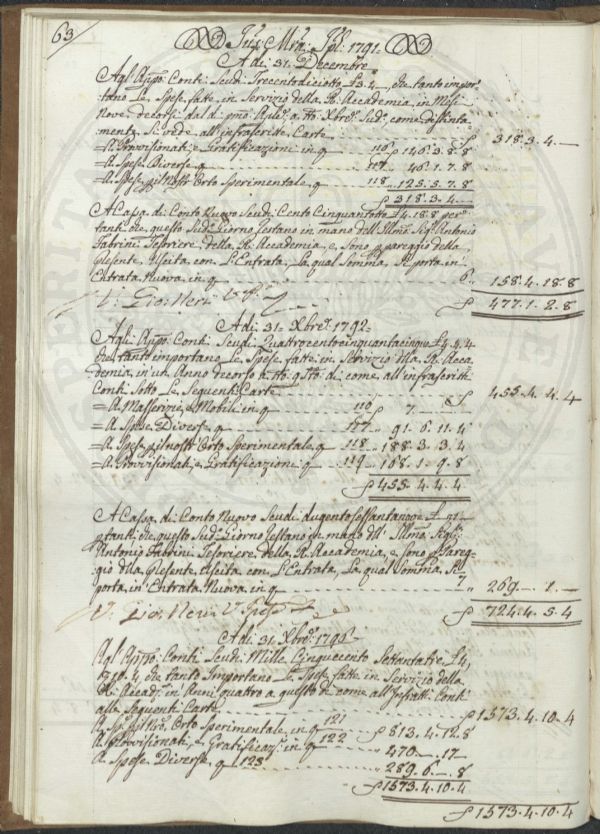 63
A di 31. Decembre
Agl' Appo: Conti Scudi Trecentodiciotto £ 3.4 -, che tanto impor
tano Le Spese fatte in Servizio della R. Accademia, in Mesi
Nove decorsi dal dì pmo: a tto: Xbre Sudo: come distinta
mente Si vede all'infrascritte Carte 318.3.4.—
= A Provvisionati, e Gratificazioni in q 116 146.3.8.8
= A Spese Diverse q 117 46.1.7.8
= A Spese pil Nostr' Orto Sperimentale q 118 125.5.7.8
318.3.4.—
A Cassa di Conto Nuovo Scudi Cento Cinquantotto £ 4.18.8 per
tanti che questo Sudo: Giorno restano in mano dell' Illmo: Sigr: Antonio
Fabrini Tesoriere della R. Accademia, e, Sono p pareggio della
Presente Uscita con L'Entrata, La qual Somma Si porta in
Entrata Nuova in q 6 158.4.18.8
V: Gio: Neri 477.1.2.8
A di 31= Xbre 1792=
Agli Appo: Conti Scudi Quattrocentocinquantacinque £ 4.4.4
che tanto importano Le Spese fatte in Servizio dlla R. Acca
demia, in un Anno decorso a tto: qto: di come all'infrascritti
Conti Sotto Le Seguenti Carte 455.4.4.4
= A Masserizie, e Mobili in q 110 7.
= A Spese Diverse q 117 91.6.11.4
= A Spese pil nostr' Orto Sperimentale q 118 188.3.3.4
= A Provvisionati, e Gratificazione q 119 168.1.9.8
455.4.4.4
A Cassa di Conto Nuovo Scudi dugentosessantanove £ 1
ptanti che questo Sudo: Giorno restano in mano dll' Illmo: Sigr:
Antonio Fabrini Tesoriere della R. Accademia, e Sono p Pareg
gio dlla Presente Uscita con L'Entrata, La qual Somma Si
porta in Entrata Nuova in q 7 269.—.1.—
V: Gio: Neri V: Presid 724.4.5.4
A di 31. Xbre
Agl' Appo: Conti Scudi Mille Cinquecento Settantatre £ 4,
10.4, che tanto Importano Le Spese fatte in Servizio della
R: Accadi: in Anni quattro a questo dì come all' Infratti: Conti
alle Seguenti Carte 1573.4.10.4
A Spe: pil Nro: Orto Sperimentale in q 121 813.4.12.8
A Provvisionati, e gratificazi: in q 122 470.—.17—
A Spese Diverse q 123 289.6.—.8
1573.4.10.4
1573.4.10.4